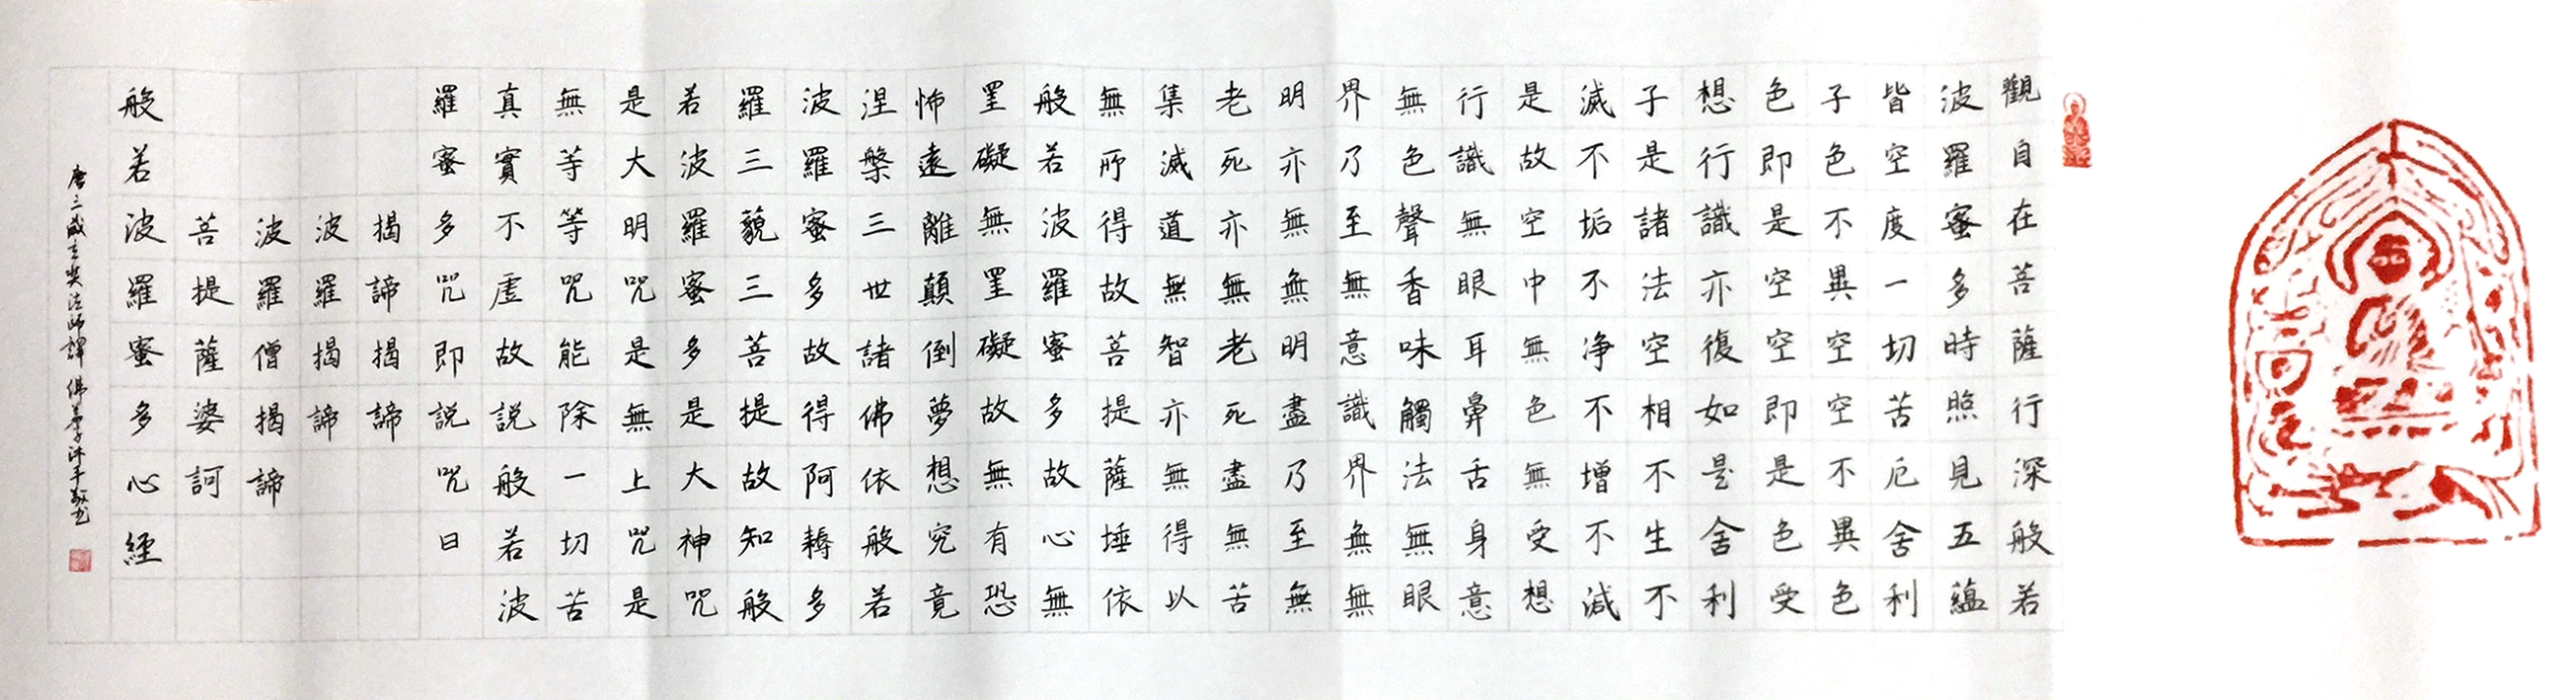 觀自在菩薩行深般若
波羅蜜多時照見五蘊
皆空度一切苦厄舍利
子色不異空空不異色
色即是空空即是色受
想行識亦復如是舍利
子是諸法空相不生不
滅不垢不净不增不減
是故空中無色無受想
行識無眼耳鼻舌身意
無色聲香味觸法無眼
界乃至無意識界無無
明亦無無明盡乃至無
老死亦無老死盡無苦
集滅道無智亦無得以
無所得故菩提薩埵依
般若波羅蜜多故心無
罣礙無罣礙故無有恐
怖遠離顛倒夢想究竟
涅槃三世諸佛依般若
波羅蜜多故得阿耨多
羅三藐三菩提故知般
若波羅蜜多是大神咒
是大明咒是無上咒是
無等等咒能除一切苦
真實不虛故説般若波
羅蜜多咒即説咒曰
揭諦揭諦
波羅揭諦
波羅僧揭諦
菩提薩婆訶
般若波羅蜜多心經
唐三藏玄奘法師譯 佛弟子沐手敬书